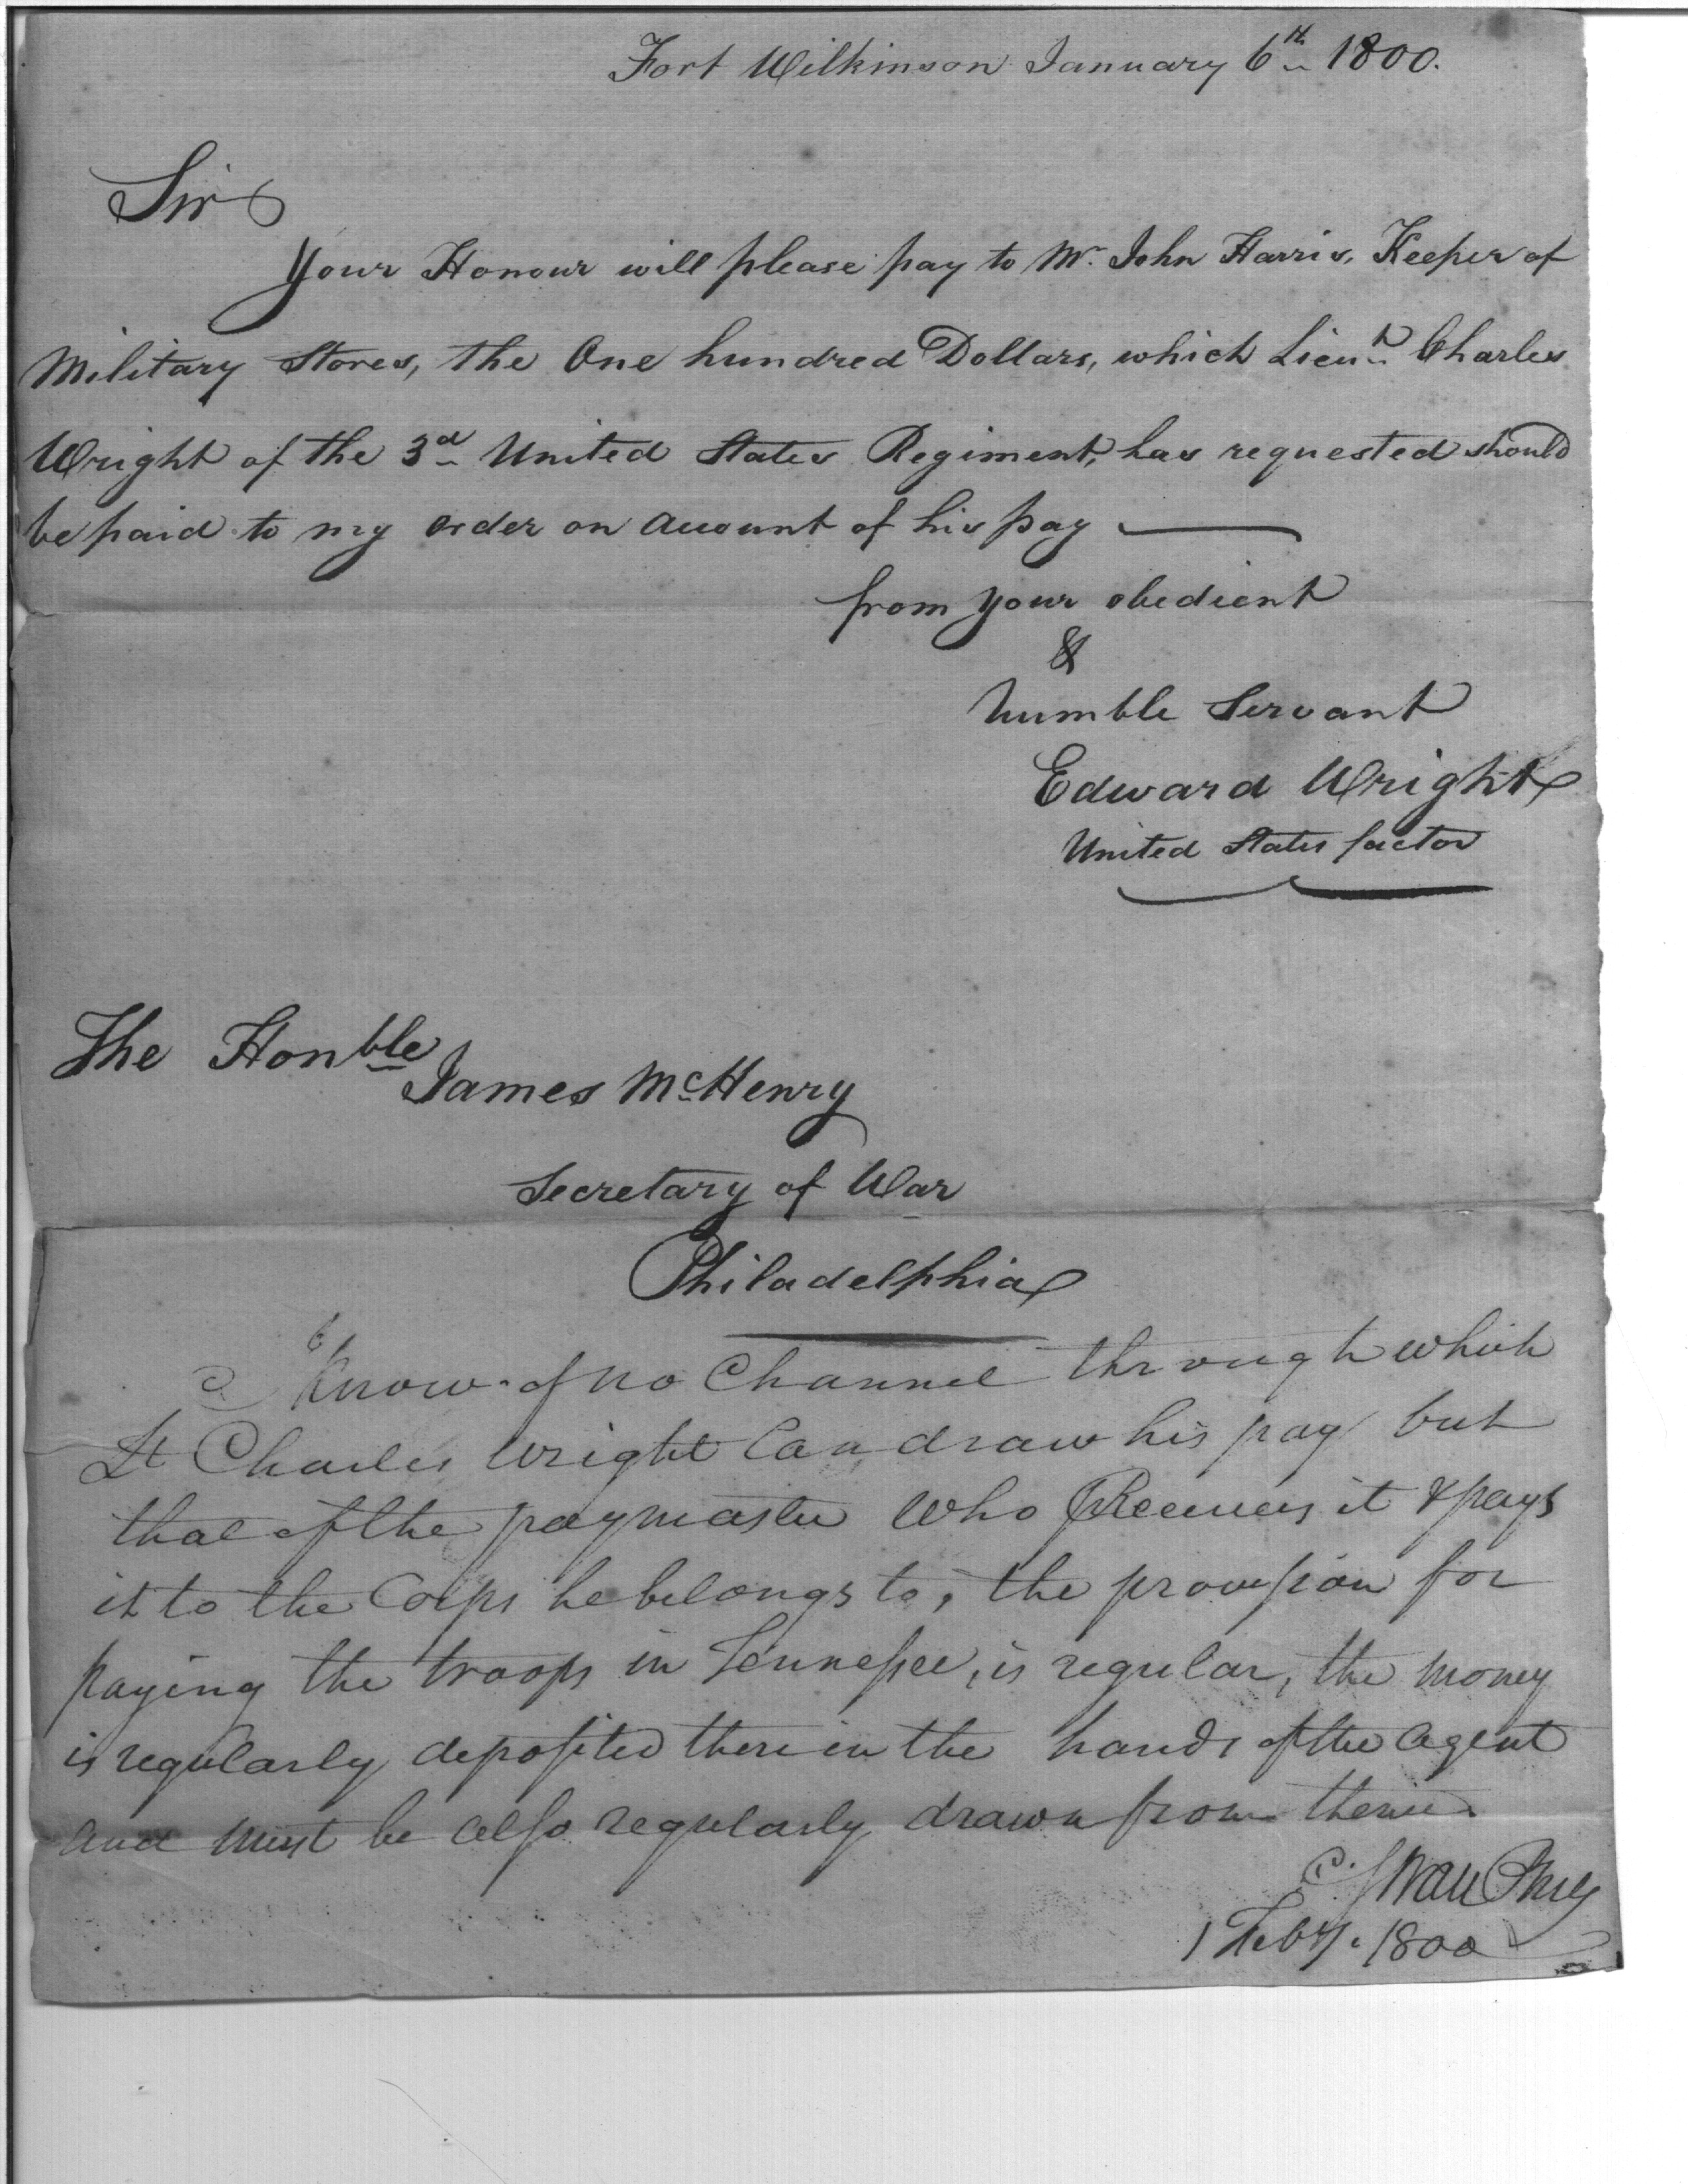 Fort Wilkinson January 6th 1800.
Sir
Your Honour will please pay to Mr. John Harris, Keeper of
Military Stores, the One hundred Dollars, which Lieut Charles
Wright of the 3d United States Regiment, has requested should
be paid to my order on account of his pay
from your obedient
&
humble Servant
Edward Wright
United States factor
The Honble
James McHenry
Secretary of War
Philadelphia
I know of no Channel through which
Lt Charles Wright Can draw his pay but
that of the paymaster who Receives it & pays
it to the Corps he belongs to, the provision for
paying the troops in Tennessee, is regular, the money
is regularly deposited there in the hands of the agent
and must be also regularly drawn from thence.
C. Swan PMG
1 Feby. 1800